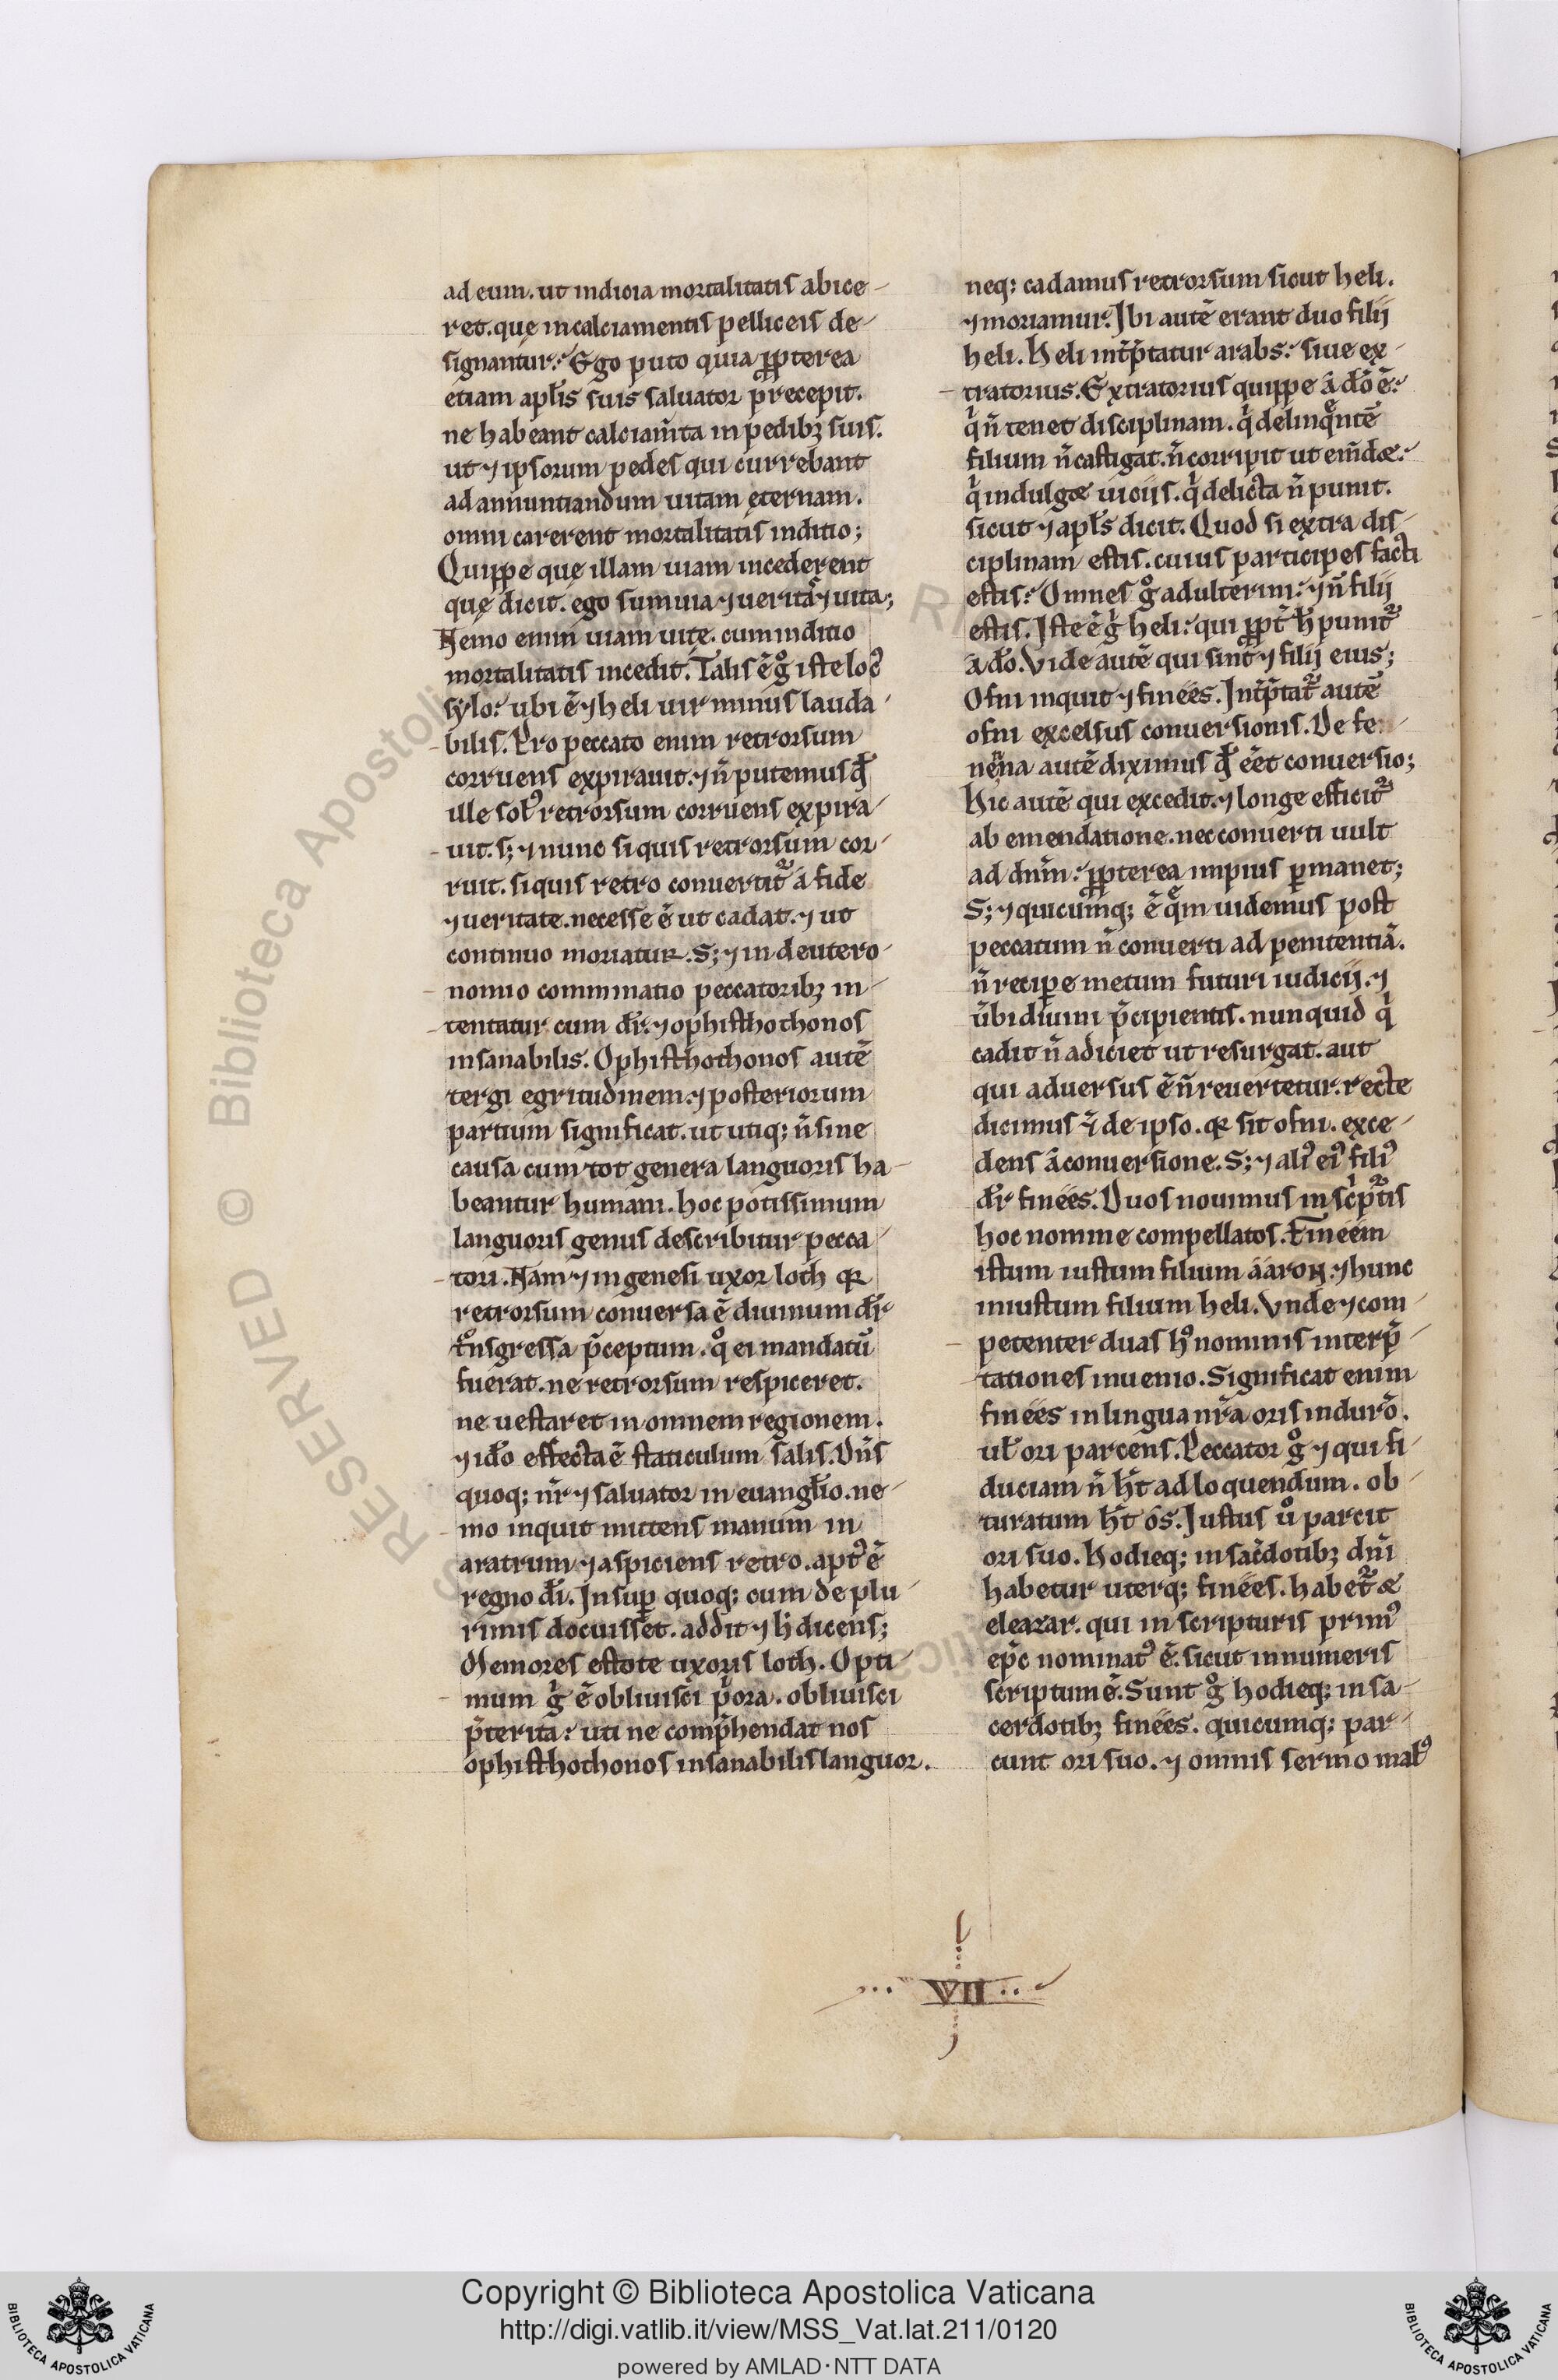 ad eum. ut indicia mortalitatis abice-
ret. quę in calciamentis pelliceis de-
signantur. Ego puto quia ꝓpterea
etiam apl̄is suis saluator p̄recepit.
ne habeant calciam̄ta in pedibꝫ suis.
ut ⁊ ipsorum pedes qui currebant
ad annuntiandum uitam ęternam.
omni carerent mortalitatis inditio;
Quippe quę illam uiam incederent
quę dicit. ego sum uia ⁊ uerita᷒ ⁊ uita;
Nemo enim uiam uitę. cum inditio
mortalitatis incedit. Talis ē gͦ iste locꝰ
sylo. ubi ē ⁊ heli uir minus lauda-
bilis. Pro peccato enim retrorsum
corruens expirauit. ⁊ n̄ putemus qđ
ille solꝰ retrorsum corruens expira-
uit. s; ⁊ nunc si quis retrorsum cor-
ruit. si quis retro conuertit᷑ a fide
⁊ ueritate. necesse ē ut cadat. ⁊ ut
continuo moriatur. S; ⁊ in deutero-
nomio comminatio peccatoribꝫ in-
tentatur cum dr̄. ⁊ ophisthothonos
insanabilis. Ophisthothonos autē
tergi egritudinem. ⁊ posteriorum
partium significat. ut utiq; n̄ sine
causa cum tot genera languoris ha-
beantur humani. hoc potissimum
languoris genus describitur pecca-
tori. Nam ⁊ in genesi uxor loth qꝛ
retrorsum conuersa ē diuinum dr̄
tͣnsgressa p̄ceptum. qͦ ei mandatū
fuerat. ne retrorsum respiceret.
ne uestaret in omnem regionem.
⁊ ido effecta ē staticulum salis. Dn̄s
quoq; nr̄ ⁊ saluator in euangl̄io. ne-
mo inquit mittens manum in
aratrum ⁊ aspiciens retro. aptꝰ ē
regno dī. Insuꝑ quoq; cum de plu-
rimis docuisset. addit ⁊ h̄ dicens;
Memores estote uxoris loth. Opti-
mum gͥ ē obliuisci pͥora. obliuisci
p̄terita. uti ne comp̄hendat nos
ophisthothonos insanabilis languor.
neq; cadamus retrorsum sicut heli.
⁊ moriamur. Ibi autē erant duo filij
heli. Heli int̄p̄tatur arabs. siue ex-
tratorius. Extratorius quippe a dō ē.
qͥ n̄ tenet disciplinam. qͥ delinqͤntē
filium n̄ castigat. n̄ corripit ut em̄dæ.
qͥ indulgæ uiciis. qͥ delicta n̄ punit.
sicut ⁊ apl̄s dicit. Quod si extra dis-
ciplinam estis. cuius participes facti
estis. Omnes gͦ adulterini. ⁊ n̄ filij
estis. Iste ē gͥ heli. qui ꝓpt̄ h̄ punit᷑
a dō. Vide autē qui sint ⁊ filij eius;
Ofni inquit ⁊ finees. Int̄p̄tat᷑ autē
ofni excelsus conuersionis. De fe-
nenna autē diximus qđ eēt conuersio;
Hic autē qui excedit. ⁊ longe efficit᷑
ab emendatione. nec conuerti uult
ad dn̄m. ꝓpterea impius ꝑmanet;
S; ⁊ quicumq; ē qͤm uidemus post
peccatum n̄ conuerti ad penitentiā.
n̄ reciꝑe metum futuri iudicij. ⁊
ūbi diuini p̄cipientis. nunquid qͥ
cadit n̄ adiciet ut resurgat. aut
qui aduersus ē n̄ reuertetur. recte
dicimus ⁊ de ipso. qꝛ sit ofni. exce-
dens a conuersione. S; ⁊ aliꝰ eiꝰ filiꝰ
dr̄ finees. Duos nouimus in scͥpt᷑is
hoc nomine compellatos. Fineem
istum iustum filium aaron. ⁊ hunc
iniustum filium heli. Vnde ⁊ com-
petenter duas hꝰ nominis interp̄-
tationes inuenio. Significat enim
finees in lingua nr̄a oris indurō.
ul̄ ori parcens. Peccator gͦ ⁊ qui fi-
duciam n̄ ht̄ ad loquendum. ob-
turatum ht̄ os. Iustus uͦ parcit
ori suo. Hodieq; in sac̄dotibꝫ dn̄i
habetur uterq; finees. habet᷑ æ
eleazar. qui in scripturis primꝰ
ep̄c nominatꝰ ē. sicut in numeris
scriptum ē. Sunt gͦ hodieq; in sa-
cerdotibꝫ finees. quicumq; par-
cunt ori suo. ⁊ omnis sermo malꝰ
VII
RESERVED © Biblioteca Apostolica
Copyright © Biblioteca Apostolica Vaticana
http://digi.vatlib.it/view/MSS_Vat.lat.211/0120
powered by AMLAD·NTT DATA
BIBLIOTECA APOSTOLICA VATICANA
BIBLIOTECA APOSTOLICA VATICANA